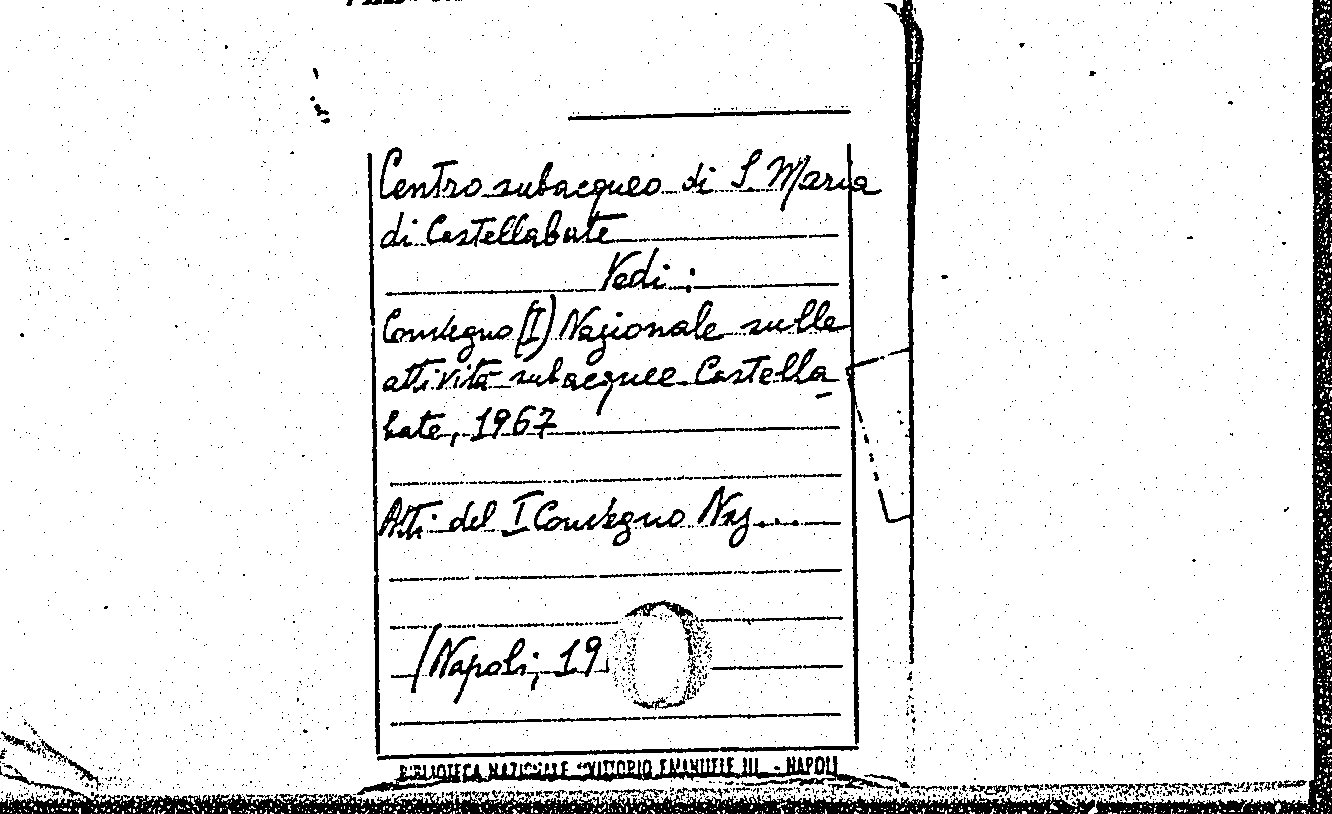 Centro subacqueo di S. Maria
di Castellabate
Vedi :
Convegno (I) Nazionale sulle
attività subacquee Castella
bate, 1967
Atti del I Convegno Naz....
(Napoli, 19
BIBLIOTECA NAZIONALE "VITTORIO EMANUELE III - NAPOLI